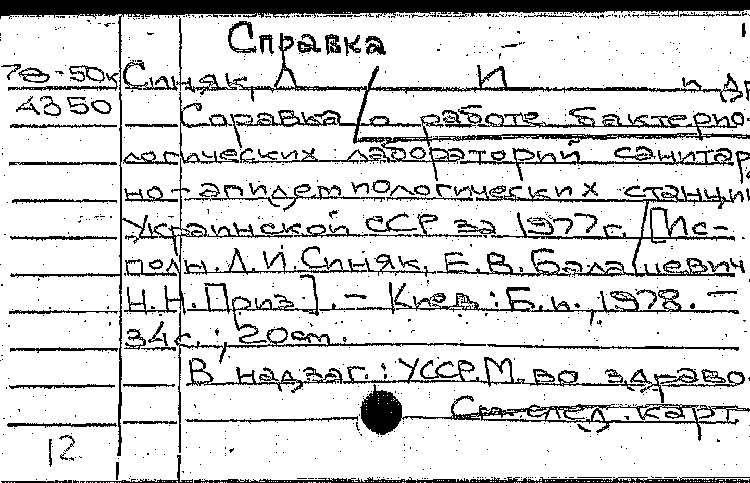 Справка
78-50к Синяк, Л И и др
4350 Справка о работе бактерио-
логических лабораторий санитар
но-эпидемиологических станций
Украинской ССР за 1977г. [Ис-
полн. Л.И. Синяк, Е.В. Балацевич
Н.Н. Приз]. - Киев: Б.и., 1978. -
34с.; 20см.
В надзаг.: УССР. М. во здраво-
См. след. карт
12